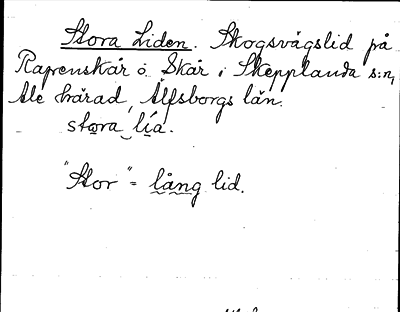 Stora Liden. Skogsvägslid på
Raprenskär ö. Skår i Skepplanda s:n,
Ale härad, Älfsborgs län.
stora lía.
"Stor" = lång lid.